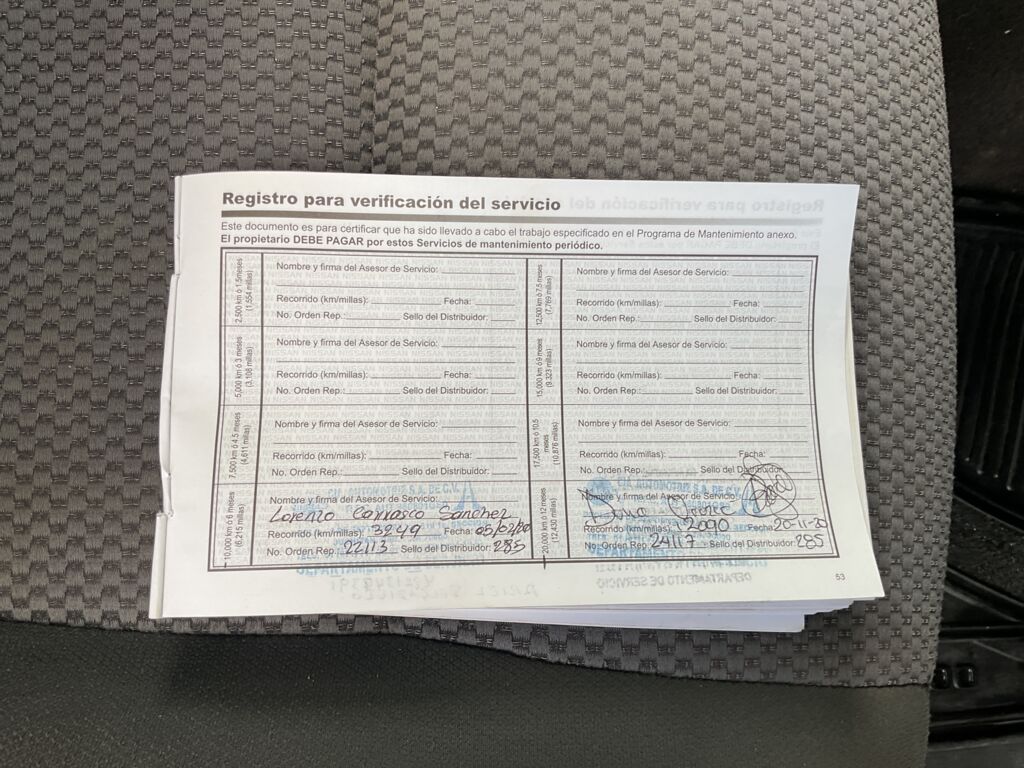 Registro para verificación del servicio
Este documento es para certificar que ha sido llevado a cabo el trabajo especificado en el Programa de Mantenimiento anexo.
El propietario DEBE PAGAR por estos Servicios de mantenimiento periódico.
2,500 km ó 1.5 meses
(1,554 millas)
Nombre y firma del Asesor de Servicio:
Recorrido (km/millas): Fecha:
No. Orden Rep.: Sello del Distribuidor:
5,000 km ó 3 meses
(3,108 millas)
Nombre y firma del Asesor de Servicio:
Recorrido (km/millas): Fecha:
No. Orden Rep.: Sello del Distribuidor:
7,500 km ó 4.5 meses
(4,611 millas)
Nombre y firma del Asesor de Servicio:
Recorrido (km/millas): Fecha:
No. Orden Rep.: Sello del Distribuidor:
10,000 km ó 6 meses
(6,215 millas)
Nombre y firma del Asesor de Servicio:
Lorenzo Carrasco Sanchez
Recorrido (km/millas): 3249 Fecha: 05/02/20
No. Orden Rep.: 22113 Sello del Distribuidor: 285
12,500 km ó 7.5 meses
(7,769 millas)
Nombre y firma del Asesor de Servicio:
Recorrido (km/millas): Fecha:
No. Orden Rep.: Sello del Distribuidor:
15,000 km ó 9 meses
(9,323 millas)
Nombre y firma del Asesor de Servicio:
Recorrido (km/millas): Fecha:
No. Orden Rep.: Sello del Distribuidor:
17,500 km ó 10.5 meses
(10,876 millas)
Nombre y firma del Asesor de Servicio:
Recorrido (km/millas): Fecha:
No. Orden Rep.: Sello del Distribuidor:
20,000 km ó 12 meses
(12,430 millas)
CIA AUTOMOTRIZ S.A. DE C.V.
Nombre y firma del Asesor de Servicio:
Recorrido (km/millas): 12090 Fecha: 20-11-20
No. Orden Rep. 24117 Sello del Distribuidor: 285
53